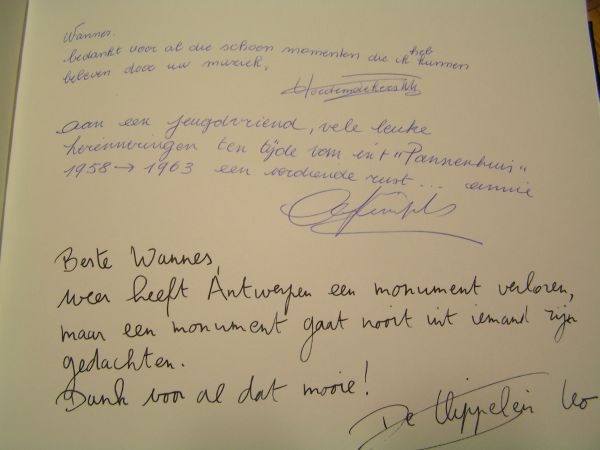 Wannes.
bedankt voor al die schoon momenten die ik heb kunnen
beleven door uw muziek.
aan een jeugdvriend, vele leuke
herinneringen ten tijde van in't "Pannenhuis"
1958 → 1963 een verdiende rust... annie
Beste Wannes,
weer heeft Antwerpen een monument verloren,
maar een monument gaat nooit uit iemand zijn
gedachten.
Dank voor al dat moois!
De Clippelein Leo